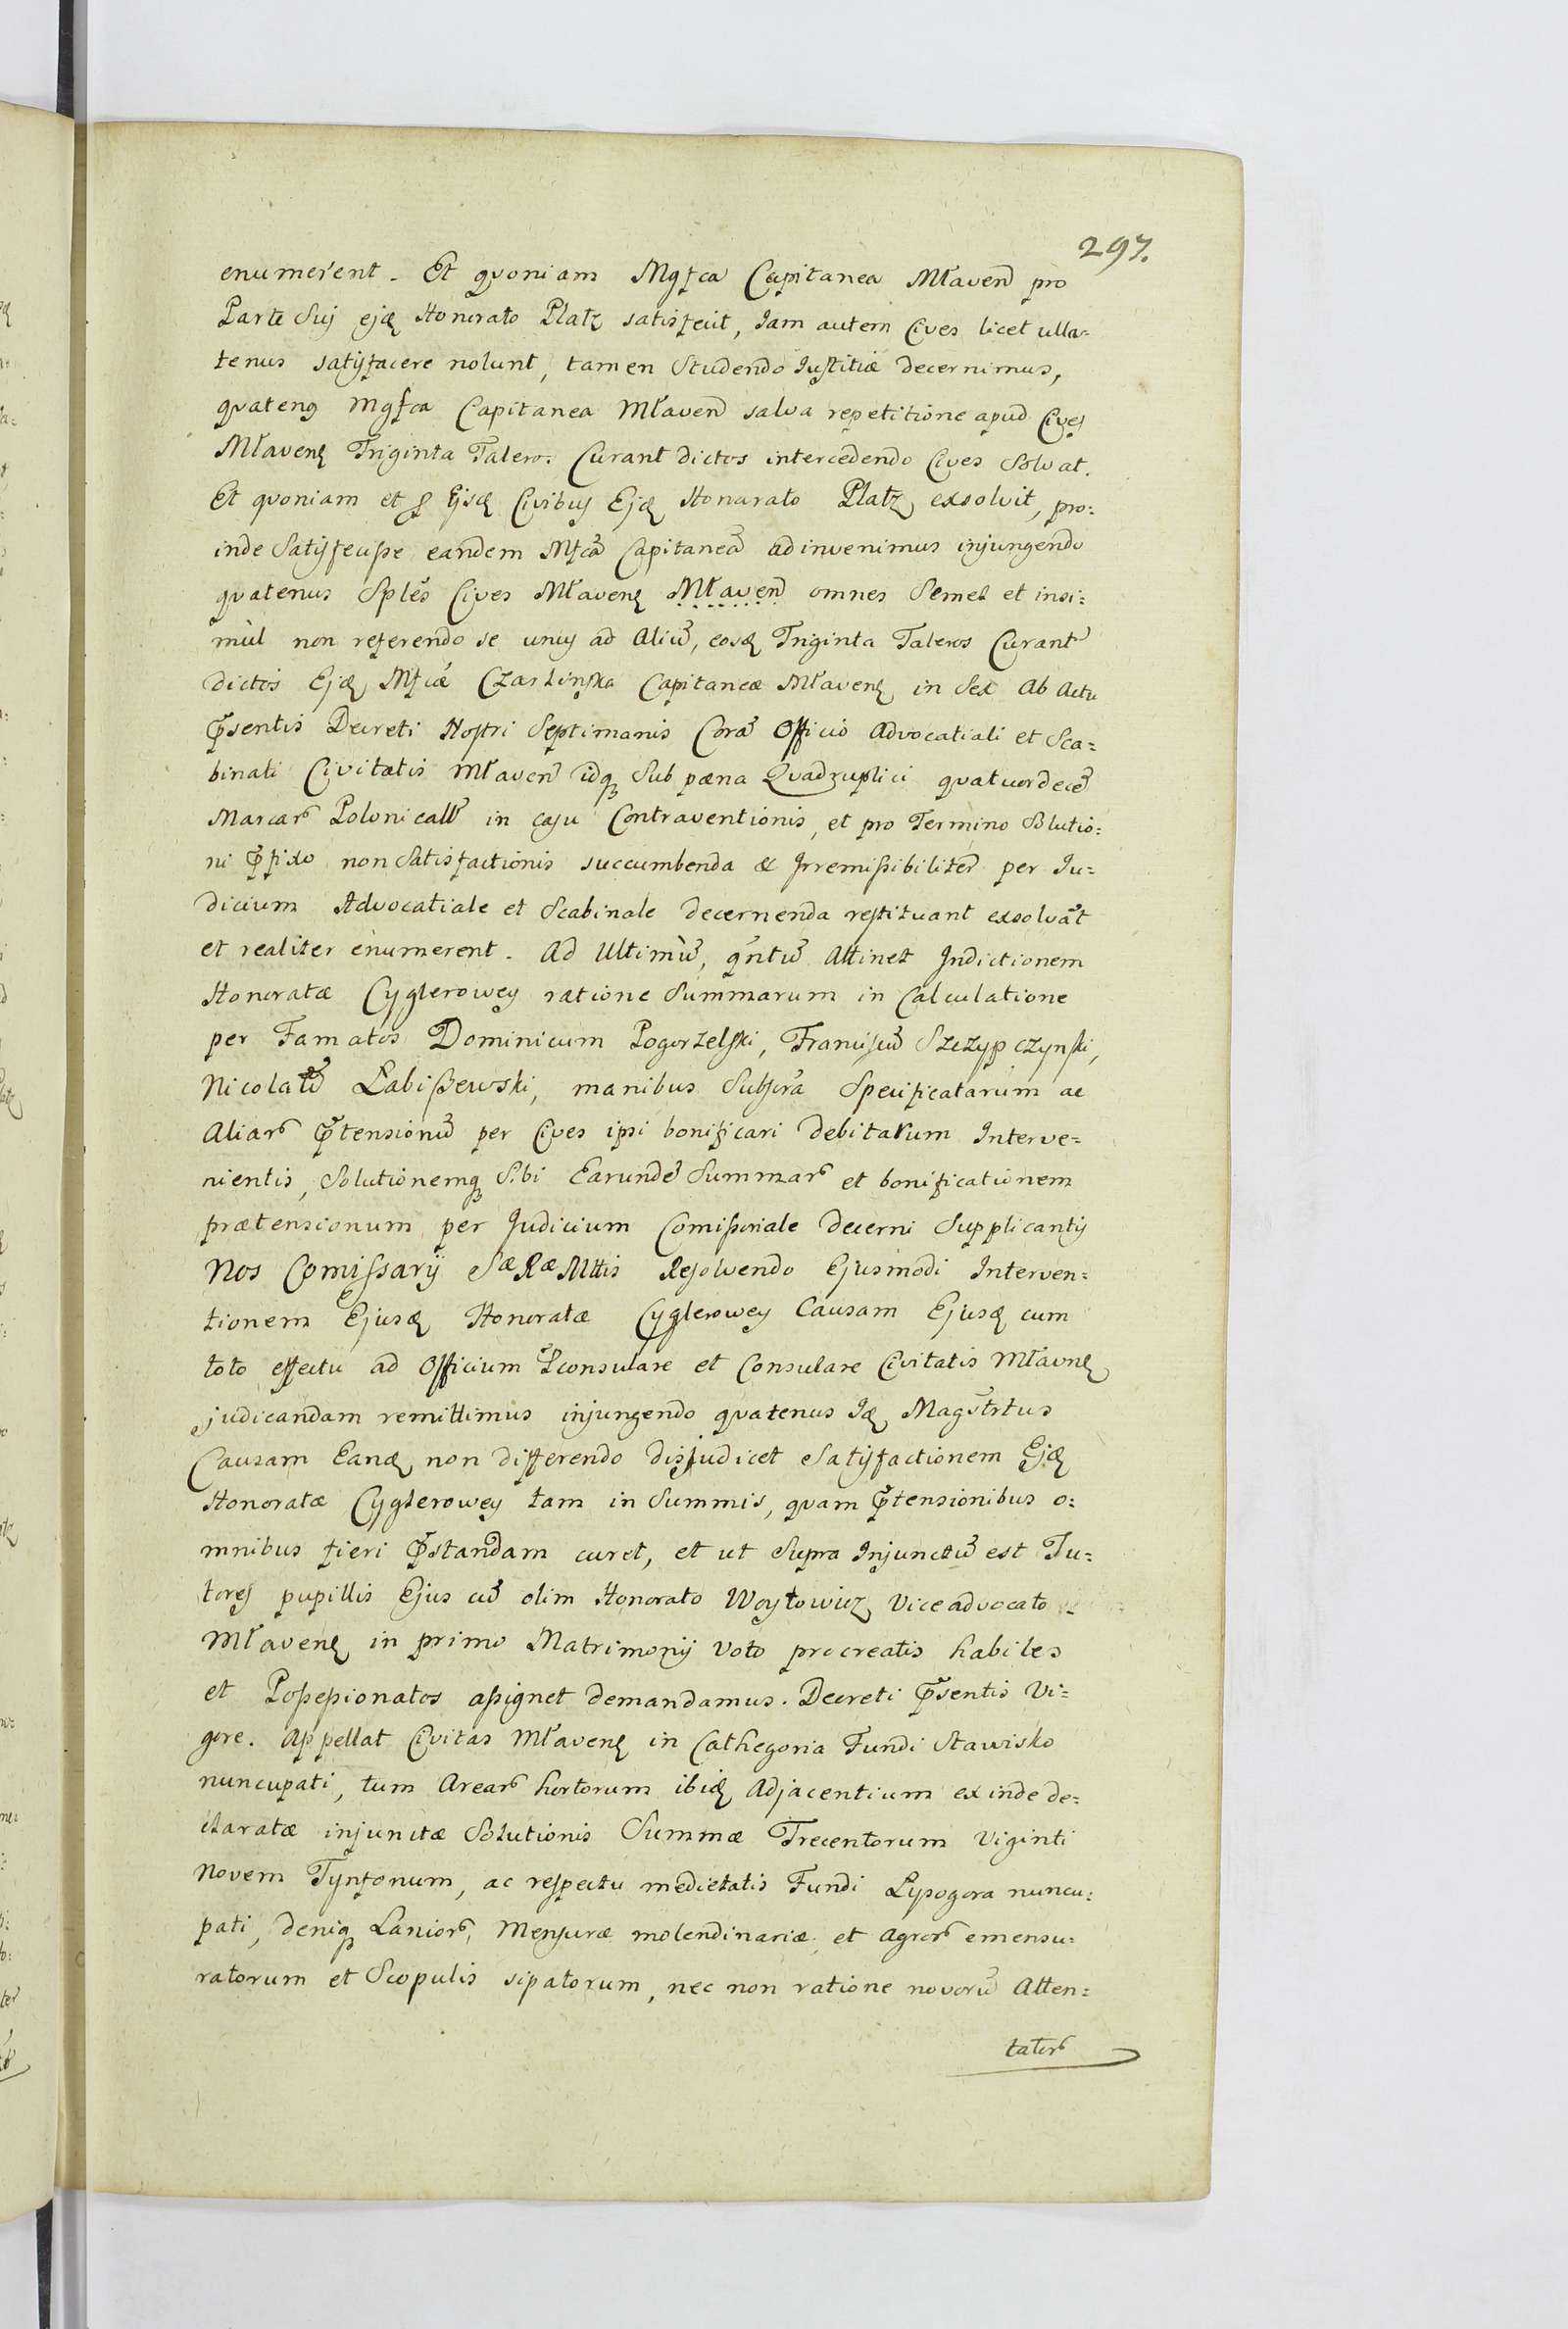 297.
enumerent. Et qvoniam Mgfca Capitanea Mławen̄ pro
Parte Suj ejd Honorato Platz satisfecit, Jam autem Cives licet ulla-
tenus satisfacere nolunt, tamen Studendo Justitiæ decernimus,
qvateng Mgfca Capitanea Młavenͫ salva repetitione apud Cives
Młaven Triginta Taleros Curant dictos intercedendo Cives Solvat.
Et qvoniam et ꝑ Ejsd Civibus Ejd Honorato Platz exsolvit, pro:
inde Satisfecisse eandem Mfcā Capitaneā adinvenimus injungendo
qvatenus Splēs Cives Młaven Młaven̄ omnes Semel et insi:
mùl non referendo se unus ad Aliū, eosd Triginta Taleros Curant
dictos Ejd Mfcæ Czarlinska Capitaneæ Młaven in Sex Ab Actu
P̄sentis Decreti Nostri Septimanis Corā Officio Advocatiali et Sca=
binali Civitatis Młaven̄ idqꝫ Sub pæna Qvadruplici qvatuordecē
Marcar Polonicall in casu Contraventionis, et pro Termino Solutio:
ni P̄fixo non Satisfactionis succumbenda & Irremissibiliter per Ju=
dicium Advocatiale et Scabinale decernenda restituant exsolvāt
et realiter enumerent. Ad Ultimū, qn̄tū Attinet Indictionem
Honoratæ Cyglerowey ratione Summarum in Calculatione
per Famatos Dominicum Pogorzelski, Franciscū Szczypczynski,
Nicolaū Labiszewski, manibus Subscra Specificatarum ac
Aliar P̄tensionū per Cives ipsi bonificari debitarum Interve=
nientis, Solutionemqꝫ Sibi Earundē Summar et bonificationem
prætensionum per Judicium Comissoriale decerni Supplicantis
Nos Comissarij Sæ Ræ Mttis Resolvendo Ejusmodi Interven=
tionem Ejusd Honoratæ Cyglerowey Causam Ejusd cum
toto effectu ad Officium P̄consulare et Consulare Civitatis Mławn
judicandam remittimus injungendo qvatenus Jd Magstrtus
Causam Eand non differendo disjudicet Satisfactionem Ejd
Honoratæ Cyglerowey tam in Summis, qvam P̄tensionibus o:
mnibus fieri P̄standam curet, et ut Supra Injunctū est Tu=
tores pupillis Ejus cū olim Honorato Woytowicz Viceadvocato
Mławen in primo Matrimonij voto procreatis habiles
et Possessionatos assignet demandamus. Decreti P̄sentis Vi=
gore. Appellat Civitas Mławen in Cathegoria Fundi Stawisko
nuncupati, tum Arear hortorum ibid Adjacentium exinde de=
claratæ injunctæ Solutionis Summæ Trecentorum Viginti
Novem Tynfonum, ac respectu medietatis Fundi Lysogora nuncu:
pati, deniqꝫ Lanior, Mensuræ molendinariæ et Agror emensu:
ratorum et Scopulis sipatorum, nec non ratione novorū Atten=
tator